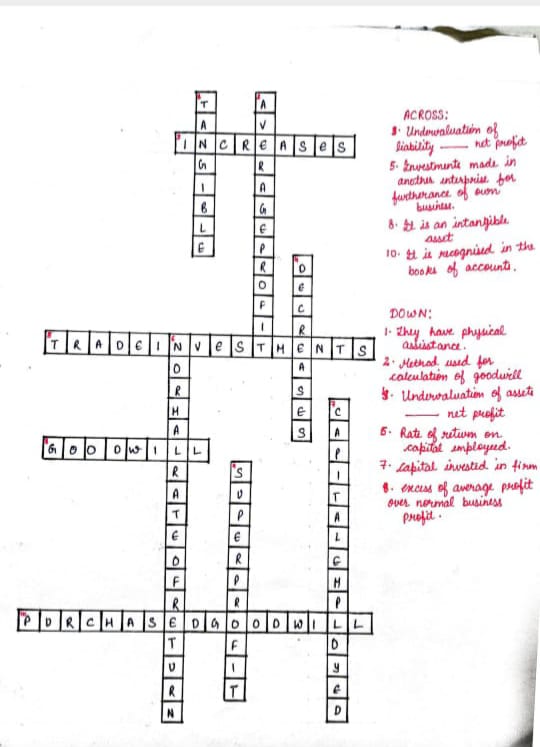 TANGIBLE
AVERAGEPROFIT
INCREASES
DECREASES
TRADEINVESTMENTS
NORMALRATEOFRETURN
CAPITALEMPLOYED
GOODWILL
SUPERPROFIT
PURCHASEDGOODWILL
ACROSS:
3. Undervaluation of
liability —— net profit
5. Investments made in
another enterprise for
furtherance of own
business.
8. It is an intangible
asset
10. It is recognised in the
books of accounts.
DOWN:
1. They have physical
assistance.
2. Method used for
calculation of goodwill
4. Undervaluation of assets
—— net profit
6. Rate of return on
capital employed.
7. Capital invested in firm
9. excess of average profit
over normal business
profit.